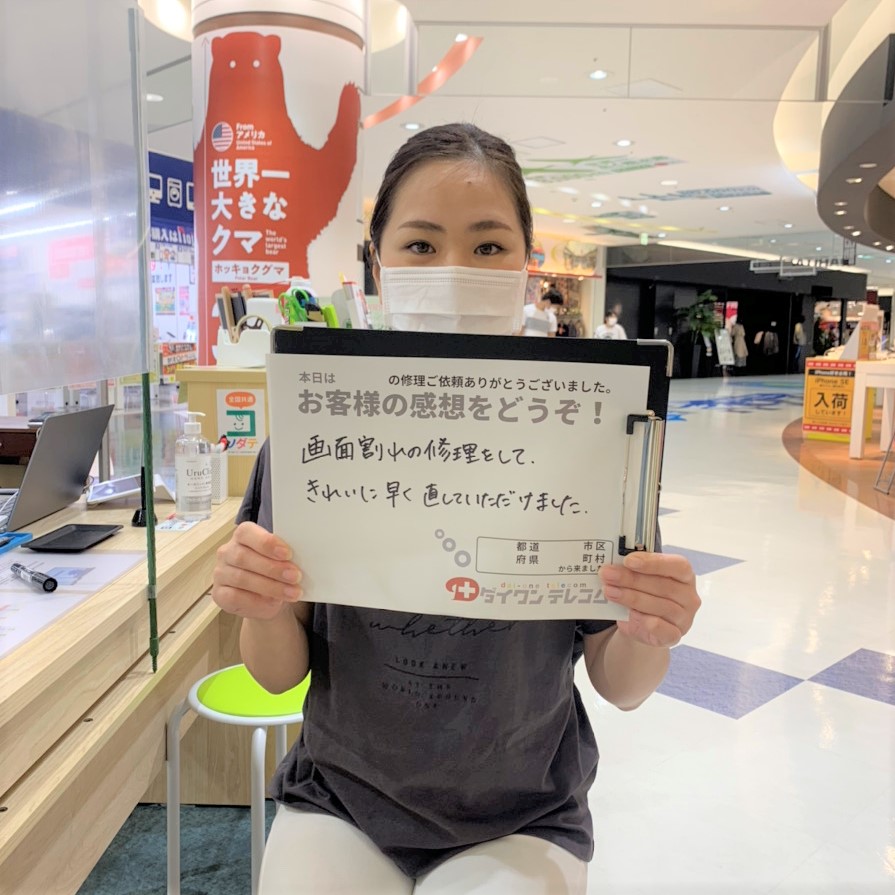 From
アメリカ
United States of
America
世界一
大きな
クマ
The
world's
largest
bear
ホッキョクグマ
Polar Bear
本日は の修理ご依頼ありがとうございました。
お客様の感想をどうぞ！
画面割れの修理をして、
きれいに早く直していただけました。
都道 市区
府県 町村
から来ました
dai-one telecom
ダイワンテレコム
whether
LOOK ANEW
AT THE
WORLD AROUND
iPhone SE
入荷
しています!
全国共通